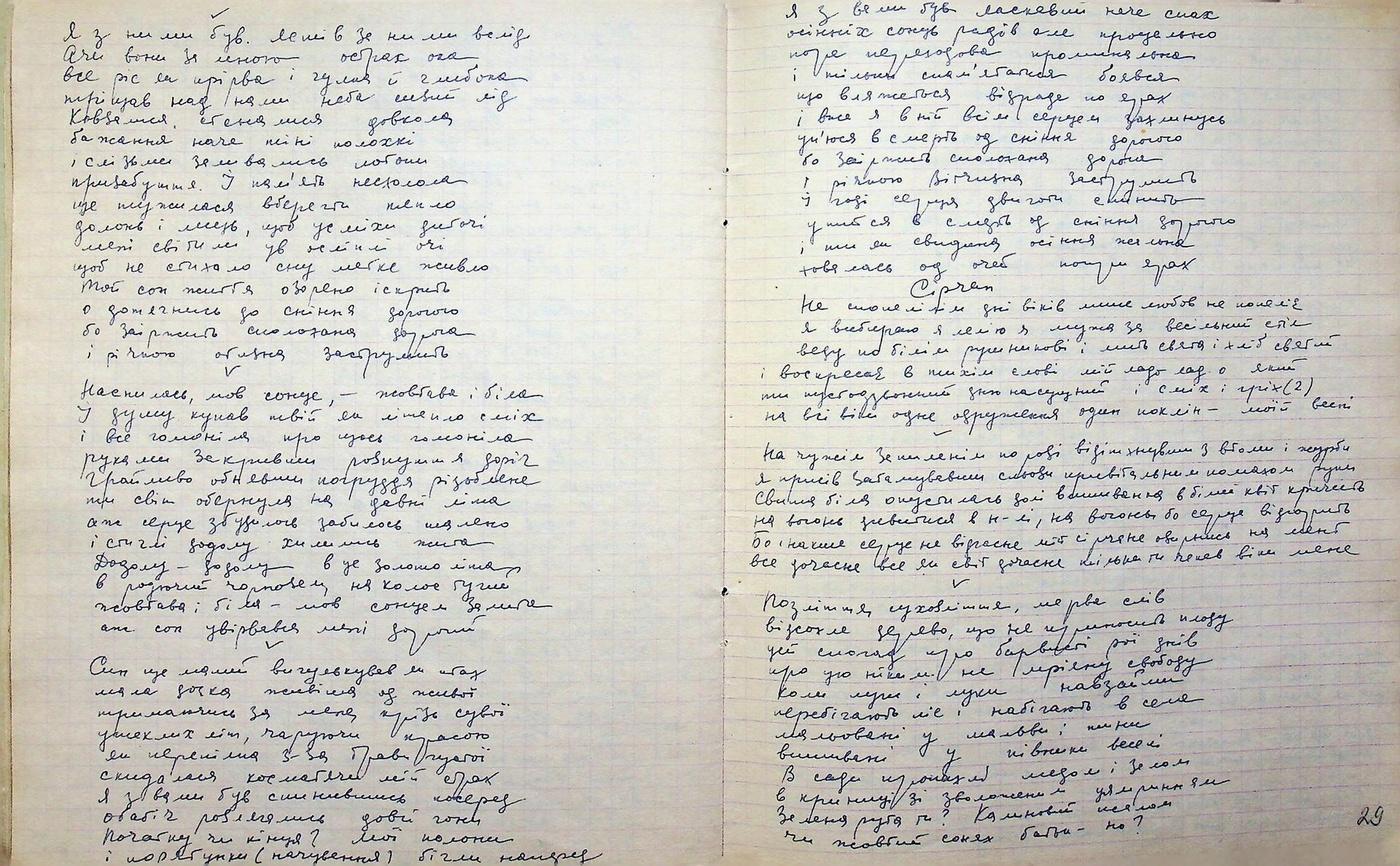 Я з ними був. Летів за ними вслід
А чи вони за мною острах ока
все ріс як прірва і гулка й глибока
тріщав над нами неба сизий лід
Ковзалися, стеналися довкола
бажання наче тіні полохкі
і слізьми заливались
призабуття. Й пам'ять
ще тужилася вберегти тепло
долонь і лиць, щоб усміхи дитячі
мені світили ув осліплі очі
щоб не стихало сну легке живло
Той сон життя озорено іскрить
о дотягнись до сніння дорогого
бо заіржить сполохана дорога
і річкою заструмить
Наснилась, мов сонце, – жовтава і біла
Й душу купав твій як літепло сміх
і все гомоніла про щось гомоніла
руками закривши розпуття доріг
Грайливо обнявши погруддя різьблене
ти світ обернула на давні літа
аж серце збудилось забилось шалено
і стиглі додолу хилились жита
Додолу – додолу в це золото літа
в родючий чорнозем, на колос тугий
жовтава і біла – мов сонцем залита
аж сон увірвався мені дорогий
Син ще малий вигулькував як птах
мала дочка живіша од живої
тримаючись за мене крізь сувої
утеклих літ, чаруючи красою
як перепілка з-за трави густої
скидалася косматячи мій страх
Я з вами був спинившись посеред
обабіч розляглись довгі гони
Початку чи кінця? Мої полони
і порятунки (начування) бігли наперед
Я з вами був ласкавий наче спах
осінніх сонць радів але прощально
пора перехідова проминальна
і тільки спам'ятатися боявся
що вляжеться відрада по ярах
і вже я в ній всім серцем захлинусь
уп'юся в смерть од сніння дорогого
бо заіржить сполохана дорога
і річкою Вітчизна заструмить
й годі серця двиготи спинить
упитися в смерть од сніння дорогого
і ти як свидина осіння жальна
ховалась од очей попри ярах
Сірчан
Не спопелім дні віків лише любов не попеліє
я вибираю я лелію я мужа за весільний стіл
веду по білім рушникові і мить свята і хліб святий
і воскресає в тихім слові мій ладо лад о який
ти пустодзвонний дню насущний і сміх і гріх (2)
на всі віки одне одруження один поклін – моїй весні
На чужім запиленім порозі відітхнувши з втоми і журби
я присів затамувавши сльози привітальним помахом руки
Свитка біла опустилась долі вишивання в білий квіт кричить
на вогонь дивитися в н-лі, на вогонь бо серце відболить
Бо інакше серце не відгасне мій сірчане обернись на мент
все дочасне все як світ дочасне тільки ти чекав віки мене
Розліття суховіття, мерва слів
відсохле дерево, що не приносить плоду
цей спогад про барвисті рої днів
про цю ніким не мріяну свободу
коли луги і луки навзаєми
перебігають ліс і набігають в села
мальовані у мальви і тини
вишивані у півники веселі
В сади пропахлі медом і зелом
в криниці зі зволоженим цямринням
Зелена рута ти? Калиновий псалом
чи жовтий сонях батьк- но?
29